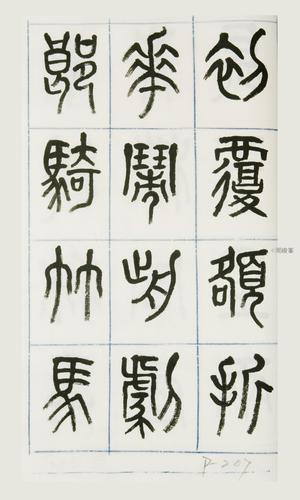 初覆額折
華鬧前劇
郎騎竹馬
P-207